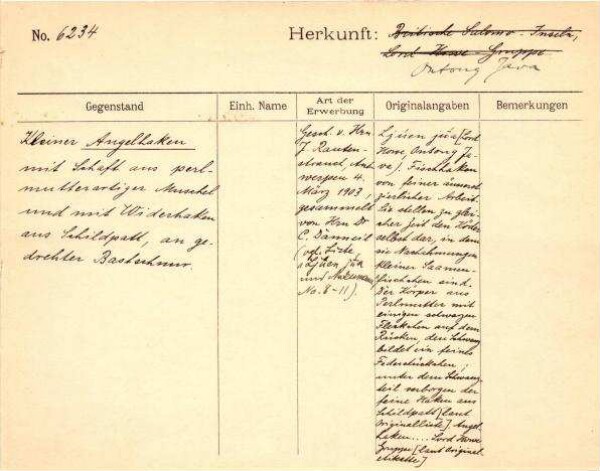 No. 6234
Herkunft: Britische Salomo-Inseln,
Lord Howe-Gruppe
Ontong Java
Gegenstand
Einh. Name
Art der
Erwerbung
Originalangaben
Bemerkungen
Kleiner Angelhaken
mit Schaft aus perl-
mutterartiger Muschel
und mit Widerhaken
aus Schildpatt, an ge-
drehter Bastschnur.
Gesch. v. Hrn
J. Rauten-
strauch, Ant-
werpen 4.
März 1903,
gesammelt
von Hrn Dr
C. Danneil
(vgl. Liste
Ljuen jua
und
No. 8-11).
Ljuen jua [Lord
Howe Ontong Ja-
ve]. Fischhaken
von feiner äusserst
zierlicher Arbeit.
Sie stellen zu glei-
cher Zeit den Köder
selbst dar, in dem
sie Nachahmungen
kleiner
fischchen sind.
Der Körper aus
Perlmutter mit
einigen schwarzen
Fleckchen auf dem
Rücken, den Schwanz
bildet ein feines
Federstückchen,
unter dem Schwanz-
teil verborgen der
feine Haken aus
Schildpatt [laut
Originalliste]. Angel-
haken.... Lord Howe
Gruppe [laut Original-
etikette]